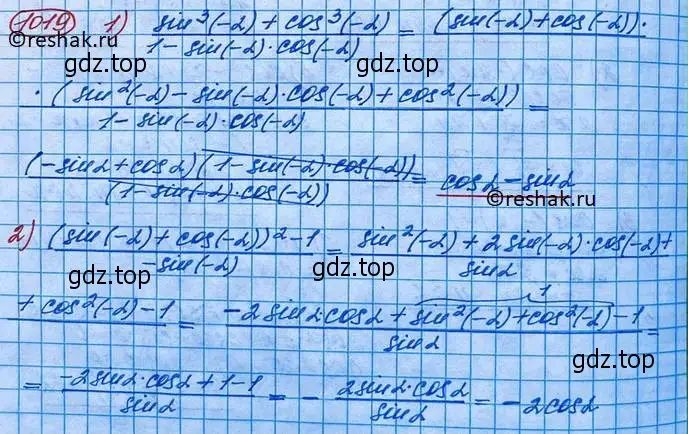 1019 1) sin³(-α) + cos³(-α) / 1 - sin(-α)·cos(-α) = (sin(-α) + cos(-α))·
©reshak.ru
gdz.top gdz.top
·(sin²(-α) - sin(-α)·cos(-α) + cos²(-α)) / 1 - sin(-α)·cos(-α) =
(-sinα + cosα)(1 - sin(-α)·cos(-α)) / (1 - sin(-α)·cos(-α)) = cosα - sinα
©reshak.ru
2) (sin(-α) + cos(-α))² - 1 / -sin(-α) = sin²(-α) + 2sin(-α)·cos(-α) + / sinα
gdz.top gdz.top
1
+ cos²(-α) - 1 = -2sinα·cosα + sin²(-α) + cos²(-α) - 1 / sinα =
gdz.top gdz.top
= -2sinα·cosα + 1 - 1 / sinα = - 2sinα·cosα / sinα = -2cosα